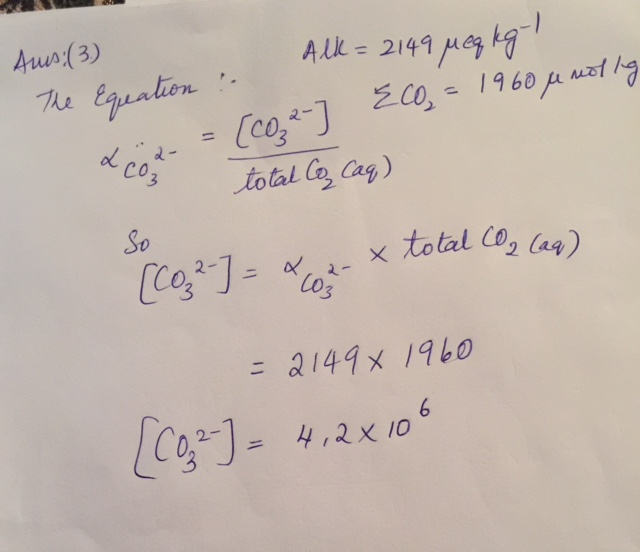 Ans:(3)
Alk = 2149 μeq kg⁻¹
The Equation :-
ΣCO₂ = 1960 μ mol/kg
α CO₃²⁻ = [CO₃²⁻] / total CO₂ (aq)
So
[CO₃²⁻] = α CO₃²⁻ × total CO₂ (aq)
= 2149 × 1960
[CO₃²⁻] = 4.2 × 10⁶